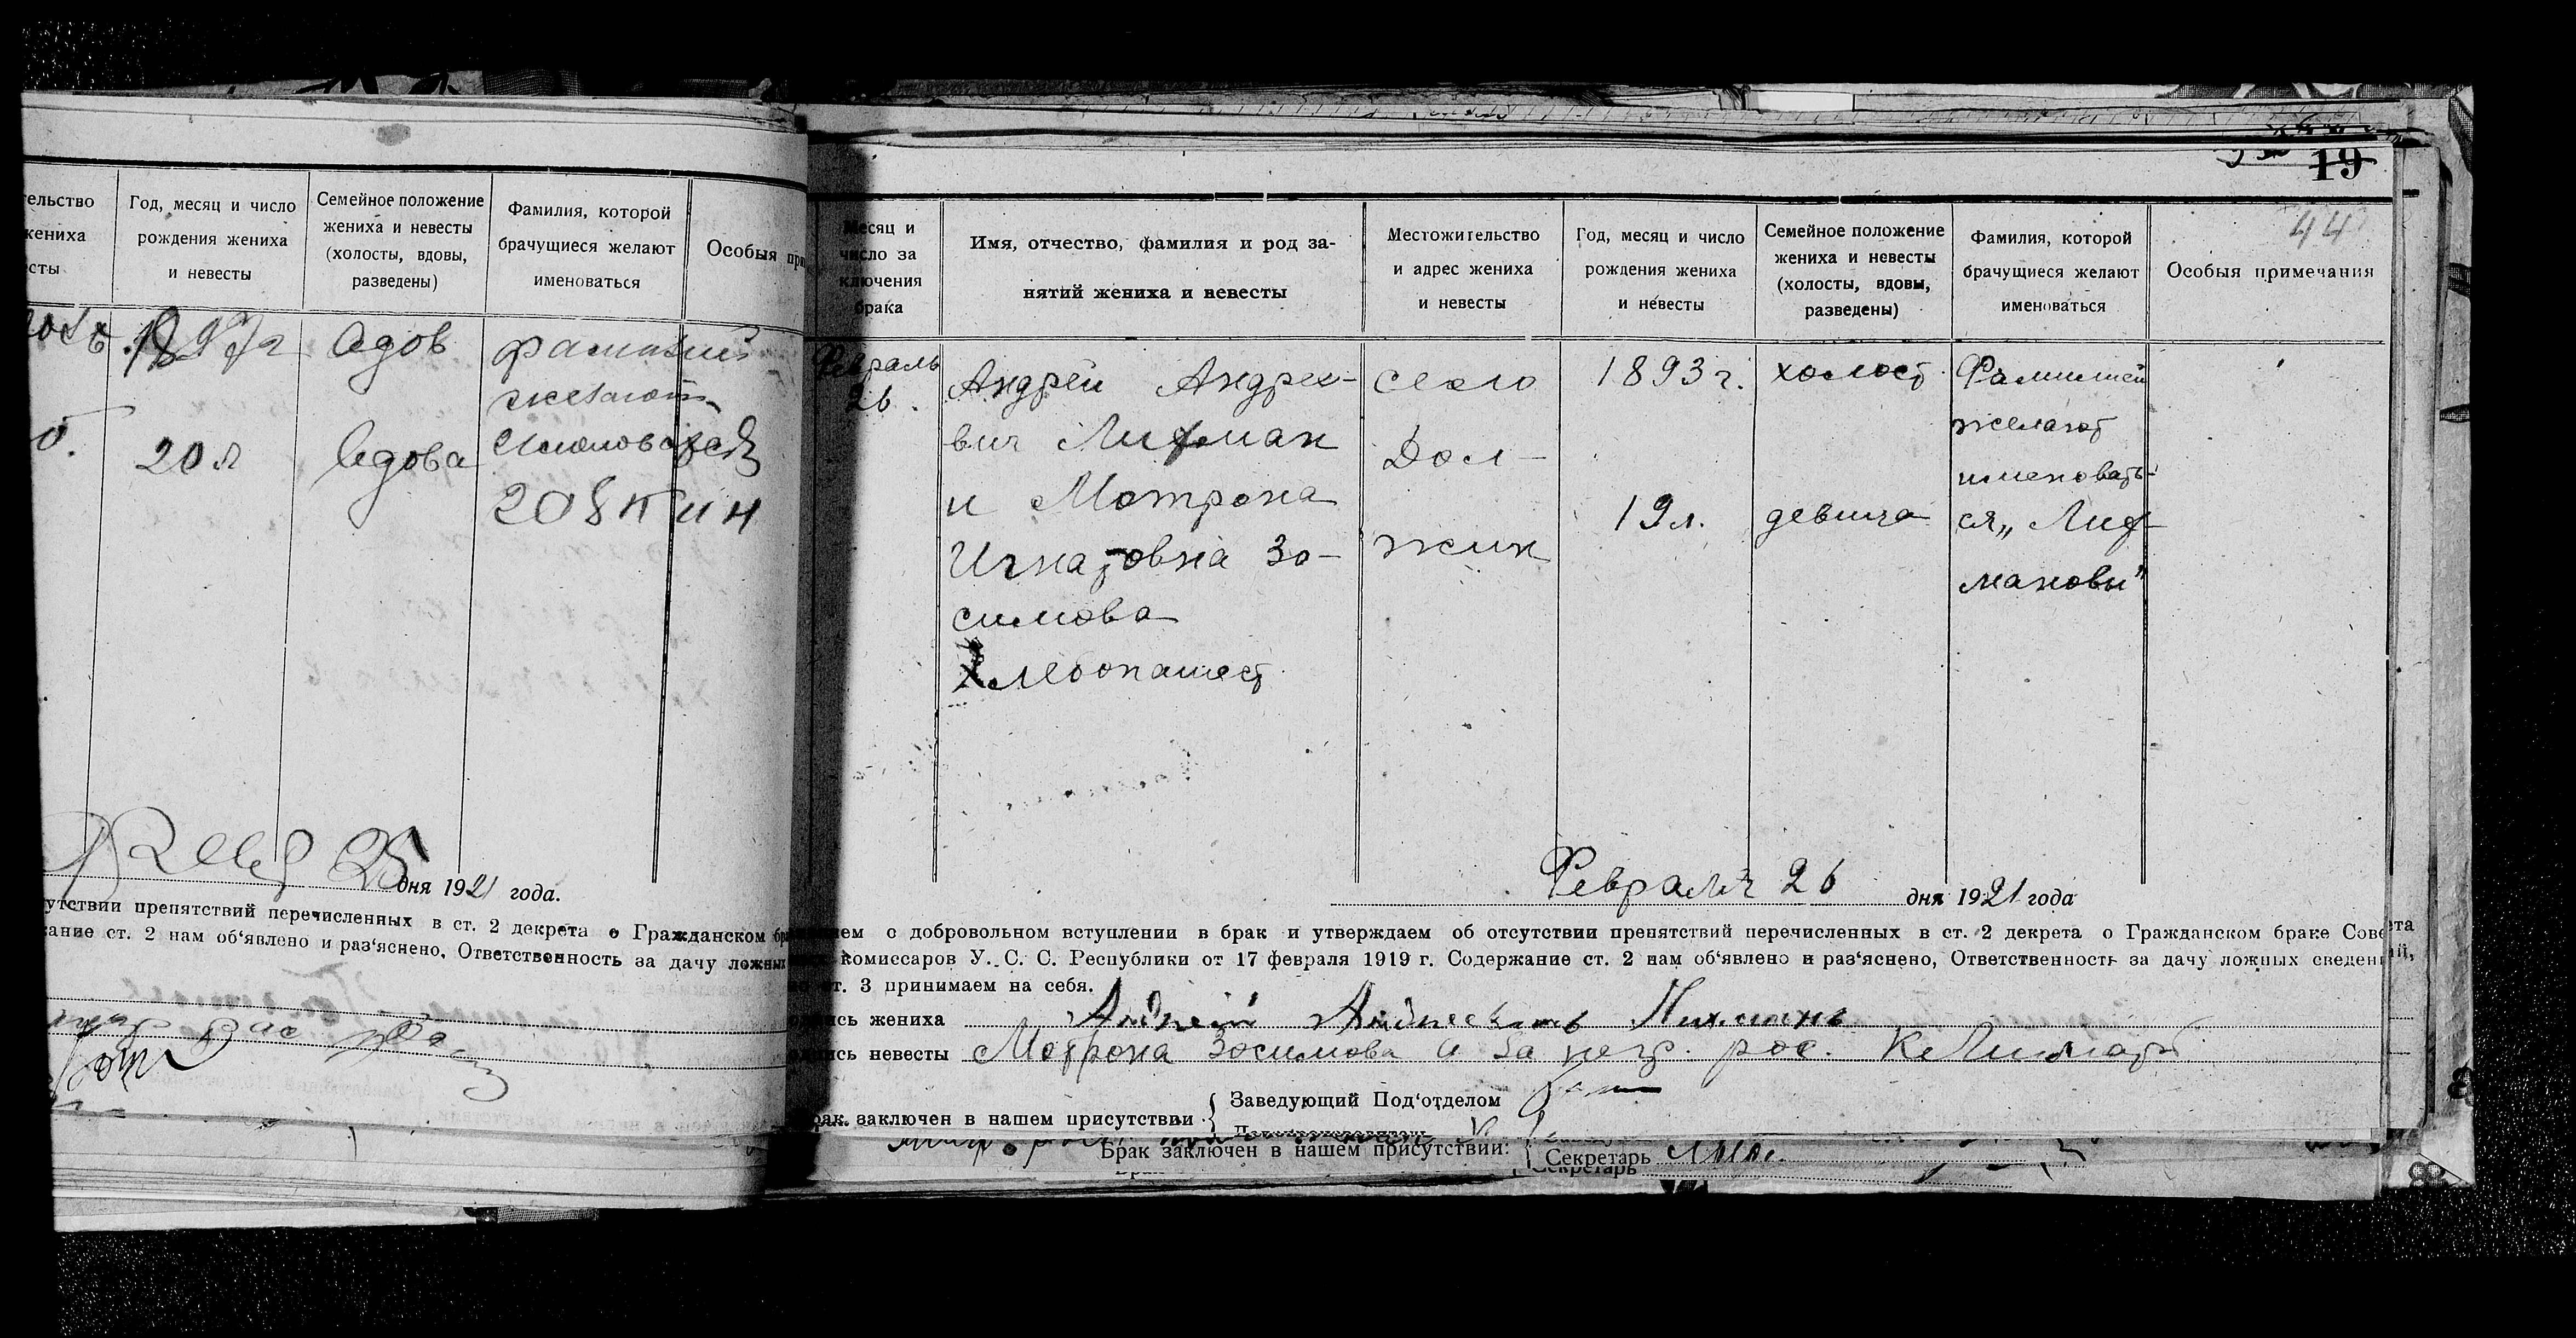 19
44
тельство
жениха
сты
Год, месяц и число
рождения жениха
и невесты
Семейное положение
жениха и невесты
(холосты, вдовы,
разведены)
Фамилия, которой
брачущиеся желают
именоваться
Особыя при
вдов
желают
20 л
вдова
25 дня 1921 года.
утствии препятствий перечисленных в ст. 2 декрета о Гражданском бра
жание ст. 2 нам об'явлено и раз'яснено, Ответственность за дачу ложных
Месяц и
число за
ключения
брака
Имя, отчество, фамилия и род за-
нятий жениха и невесты
Местожительство
и адрес жениха
и невесты
Год, месяц и число
рождения жениха
и невесты
Семейное положение
жениха и невесты
(холосты, вдовы,
разведены)
Фамилия, которой
брачущиеся желают
именоваться
Особыя примечания
Февраль
26.
Андрей Андрее-
вич Лифман
и Мотрона
Игнатовна Зо-
симова
Хлебопашест
село
Дол-
жик
1893 г.
19 л.
холост
девица
Фамилией
желают
именовать-
ся „Лиф-
мановы"
Февраля 26 дня 1921 года
ием о добровольном вступлении в брак и утверждаем об отсутствии препятствий перечисленных в ст. 2 декрета о Гражданском браке Совета
комиссаров У. С. С. Республики от 17 февраля 1919 г. Содержание ст. 2 нам об'явлено и раз'яснено, Ответственность за дачу ложных сведений,
ст. 3 принимаем на себя.
дпись жениха Андрей
дпись невесты Мотрона Зосимова а за негр. рос.
Заведующий Под'отделом
Брак заключен в нашем присутствии
Брак заключен в нашем присутствии:
Секретарь
Секретарь